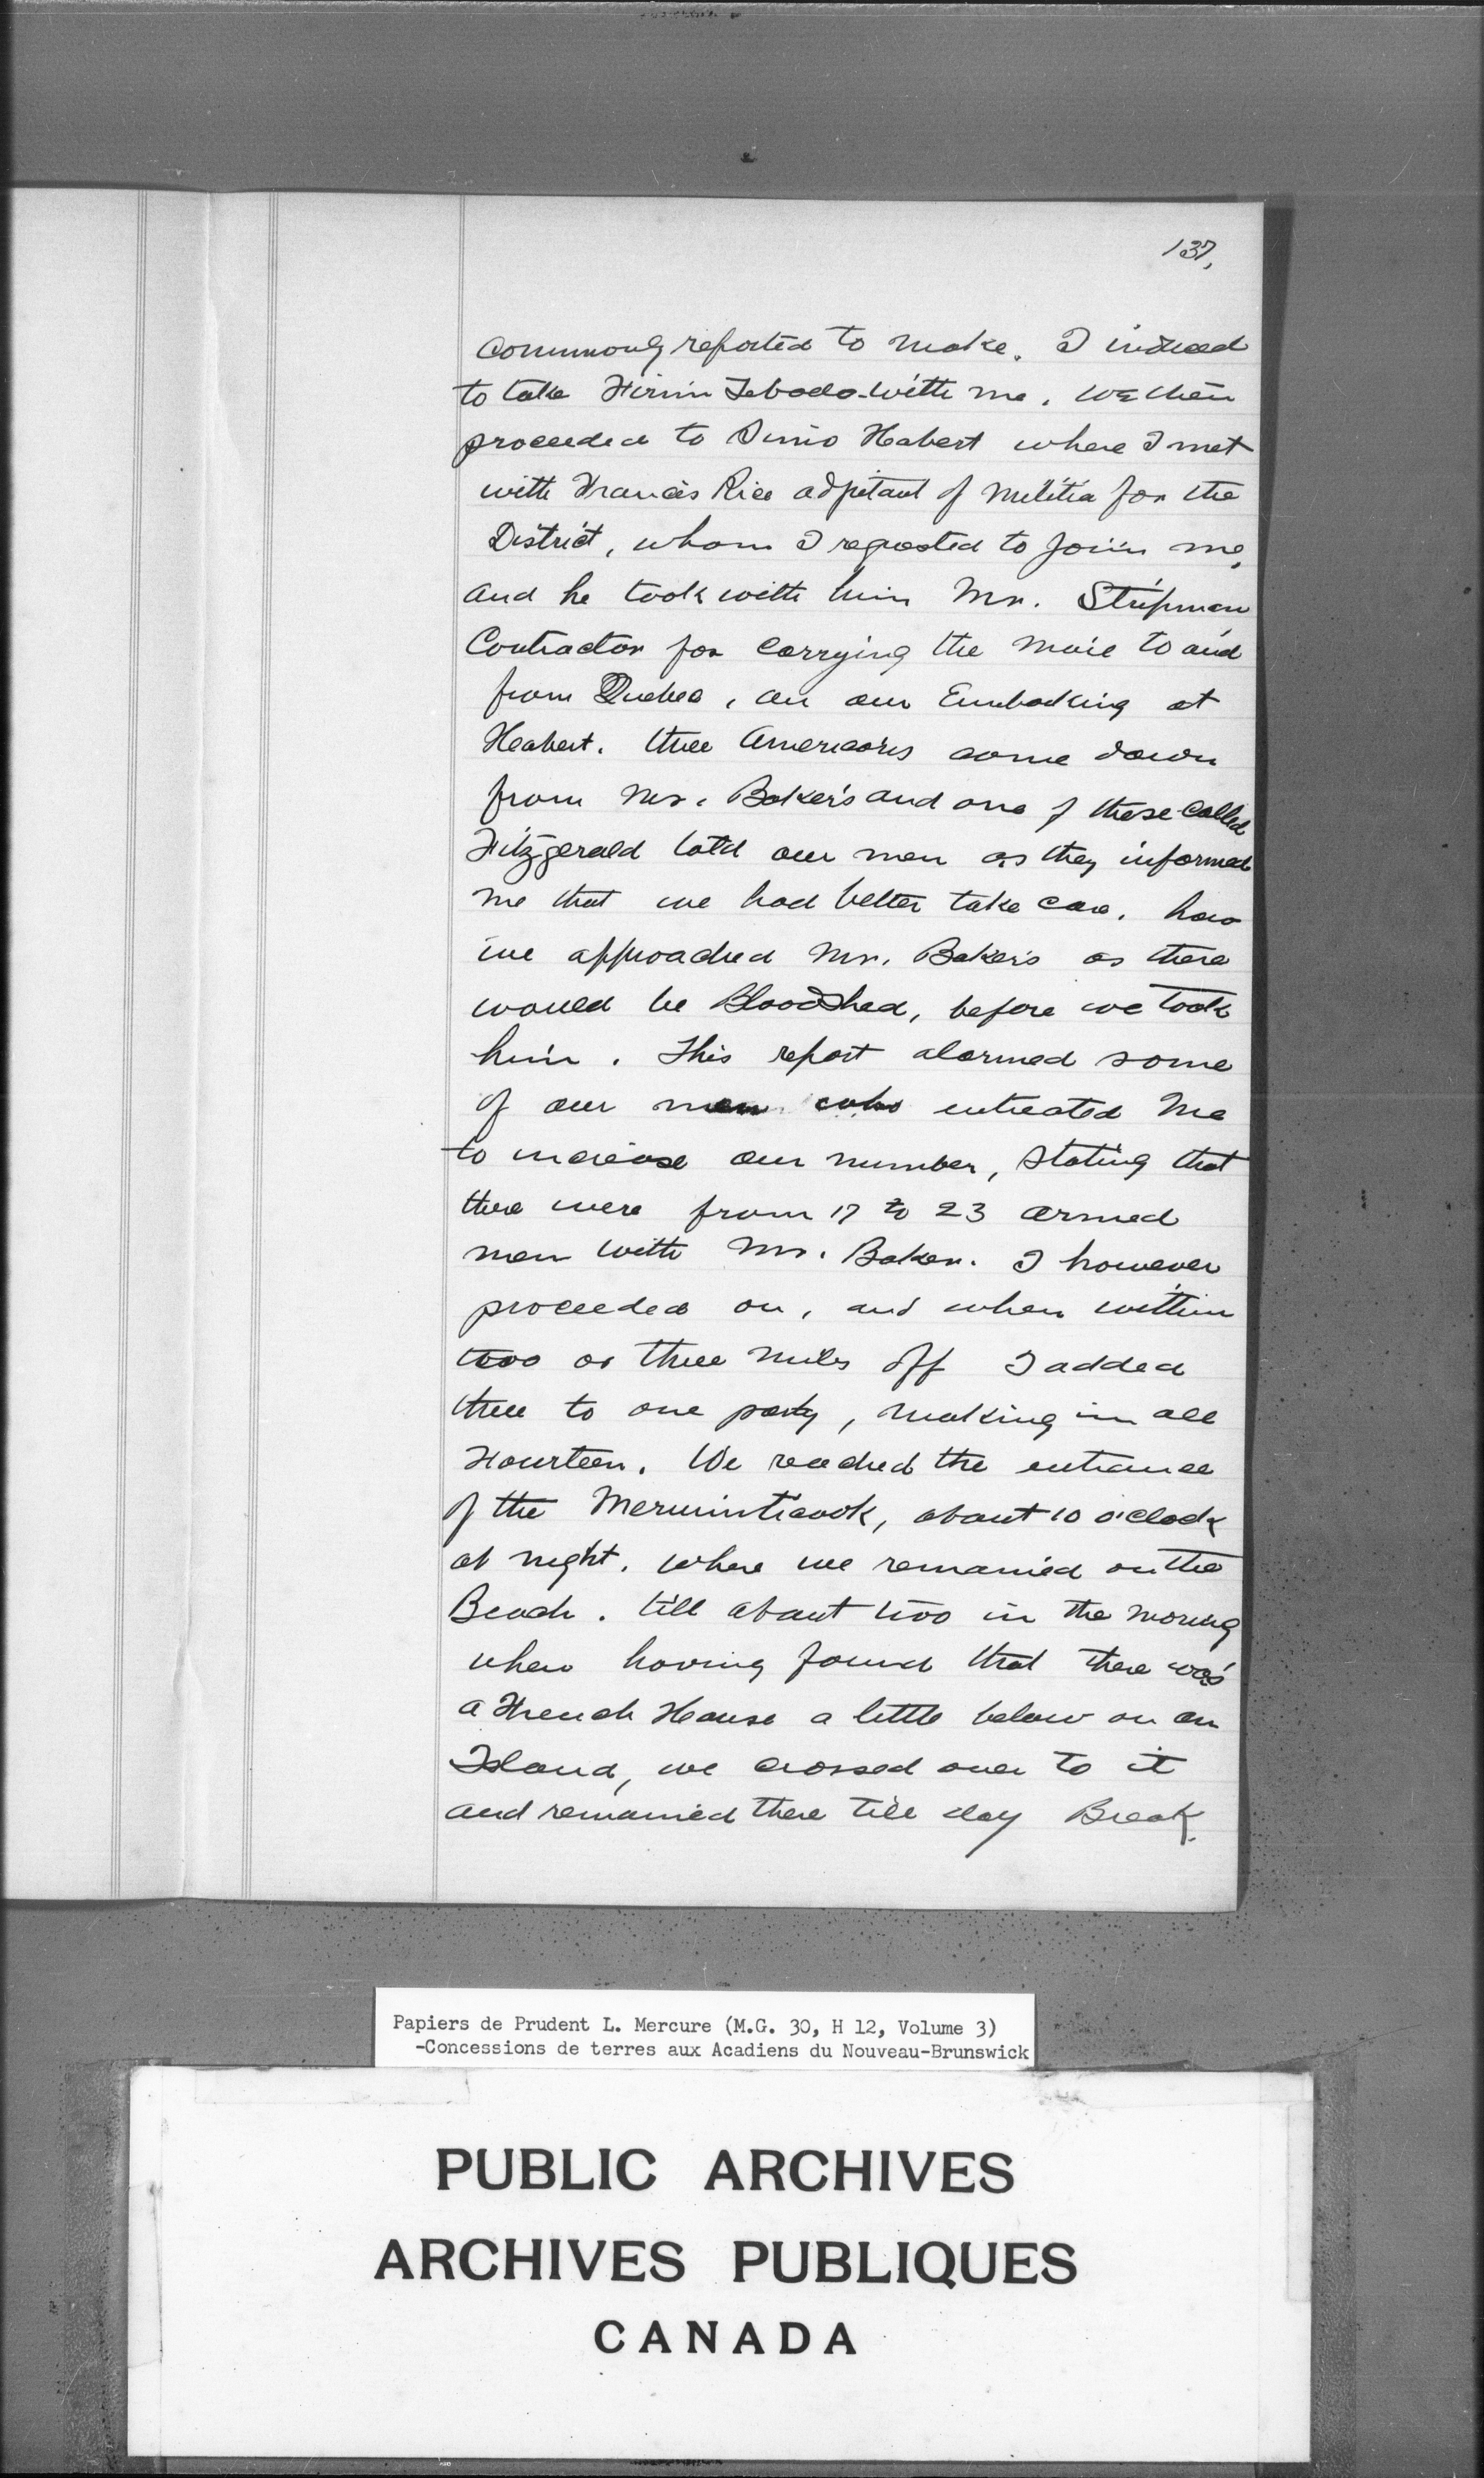 137,
Commonly reported to make. I induced
to take Firmin Tebodo with me. We then
proceeded to Simo Habert where I met
with Francis Rice adjutant of Militia for the
District, whom I requested to join me,
and he took with him Mr.
Contractor for Carrying the Mail to and
from Quebec, on our Embarking at
Heabert. three Americans come down
from Mr. Baker's and one of these Called
Fitzgerald told our men as they informed
me that we had better take care. how
we approached Mr. Bakers as there
would be BloodShed, before we took
him. This report alarmed some
of our men who entreated Me
to increase our number, stating that
there were from 17 to 23 armed
men with Mr. Baker. I however
proceeded on, and when within
two or three miles off I added
three to our party, making in all
Fourteen. We reached the entrance
of the Merumticook, about 10 o'clock
at night. where we remained on the
Beach. till about two in the morning
when having found that there was
a French House a little below on an
Island, we crossed over to it
and remained there till day Break.
Papiers de Prudent L. Mercure (M.G. 30, H 12, Volume 3)
-Concessions de terres aux Acadiens du Nouveau-Brunswick
PUBLIC ARCHIVES
ARCHIVES PUBLIQUES
CANADA